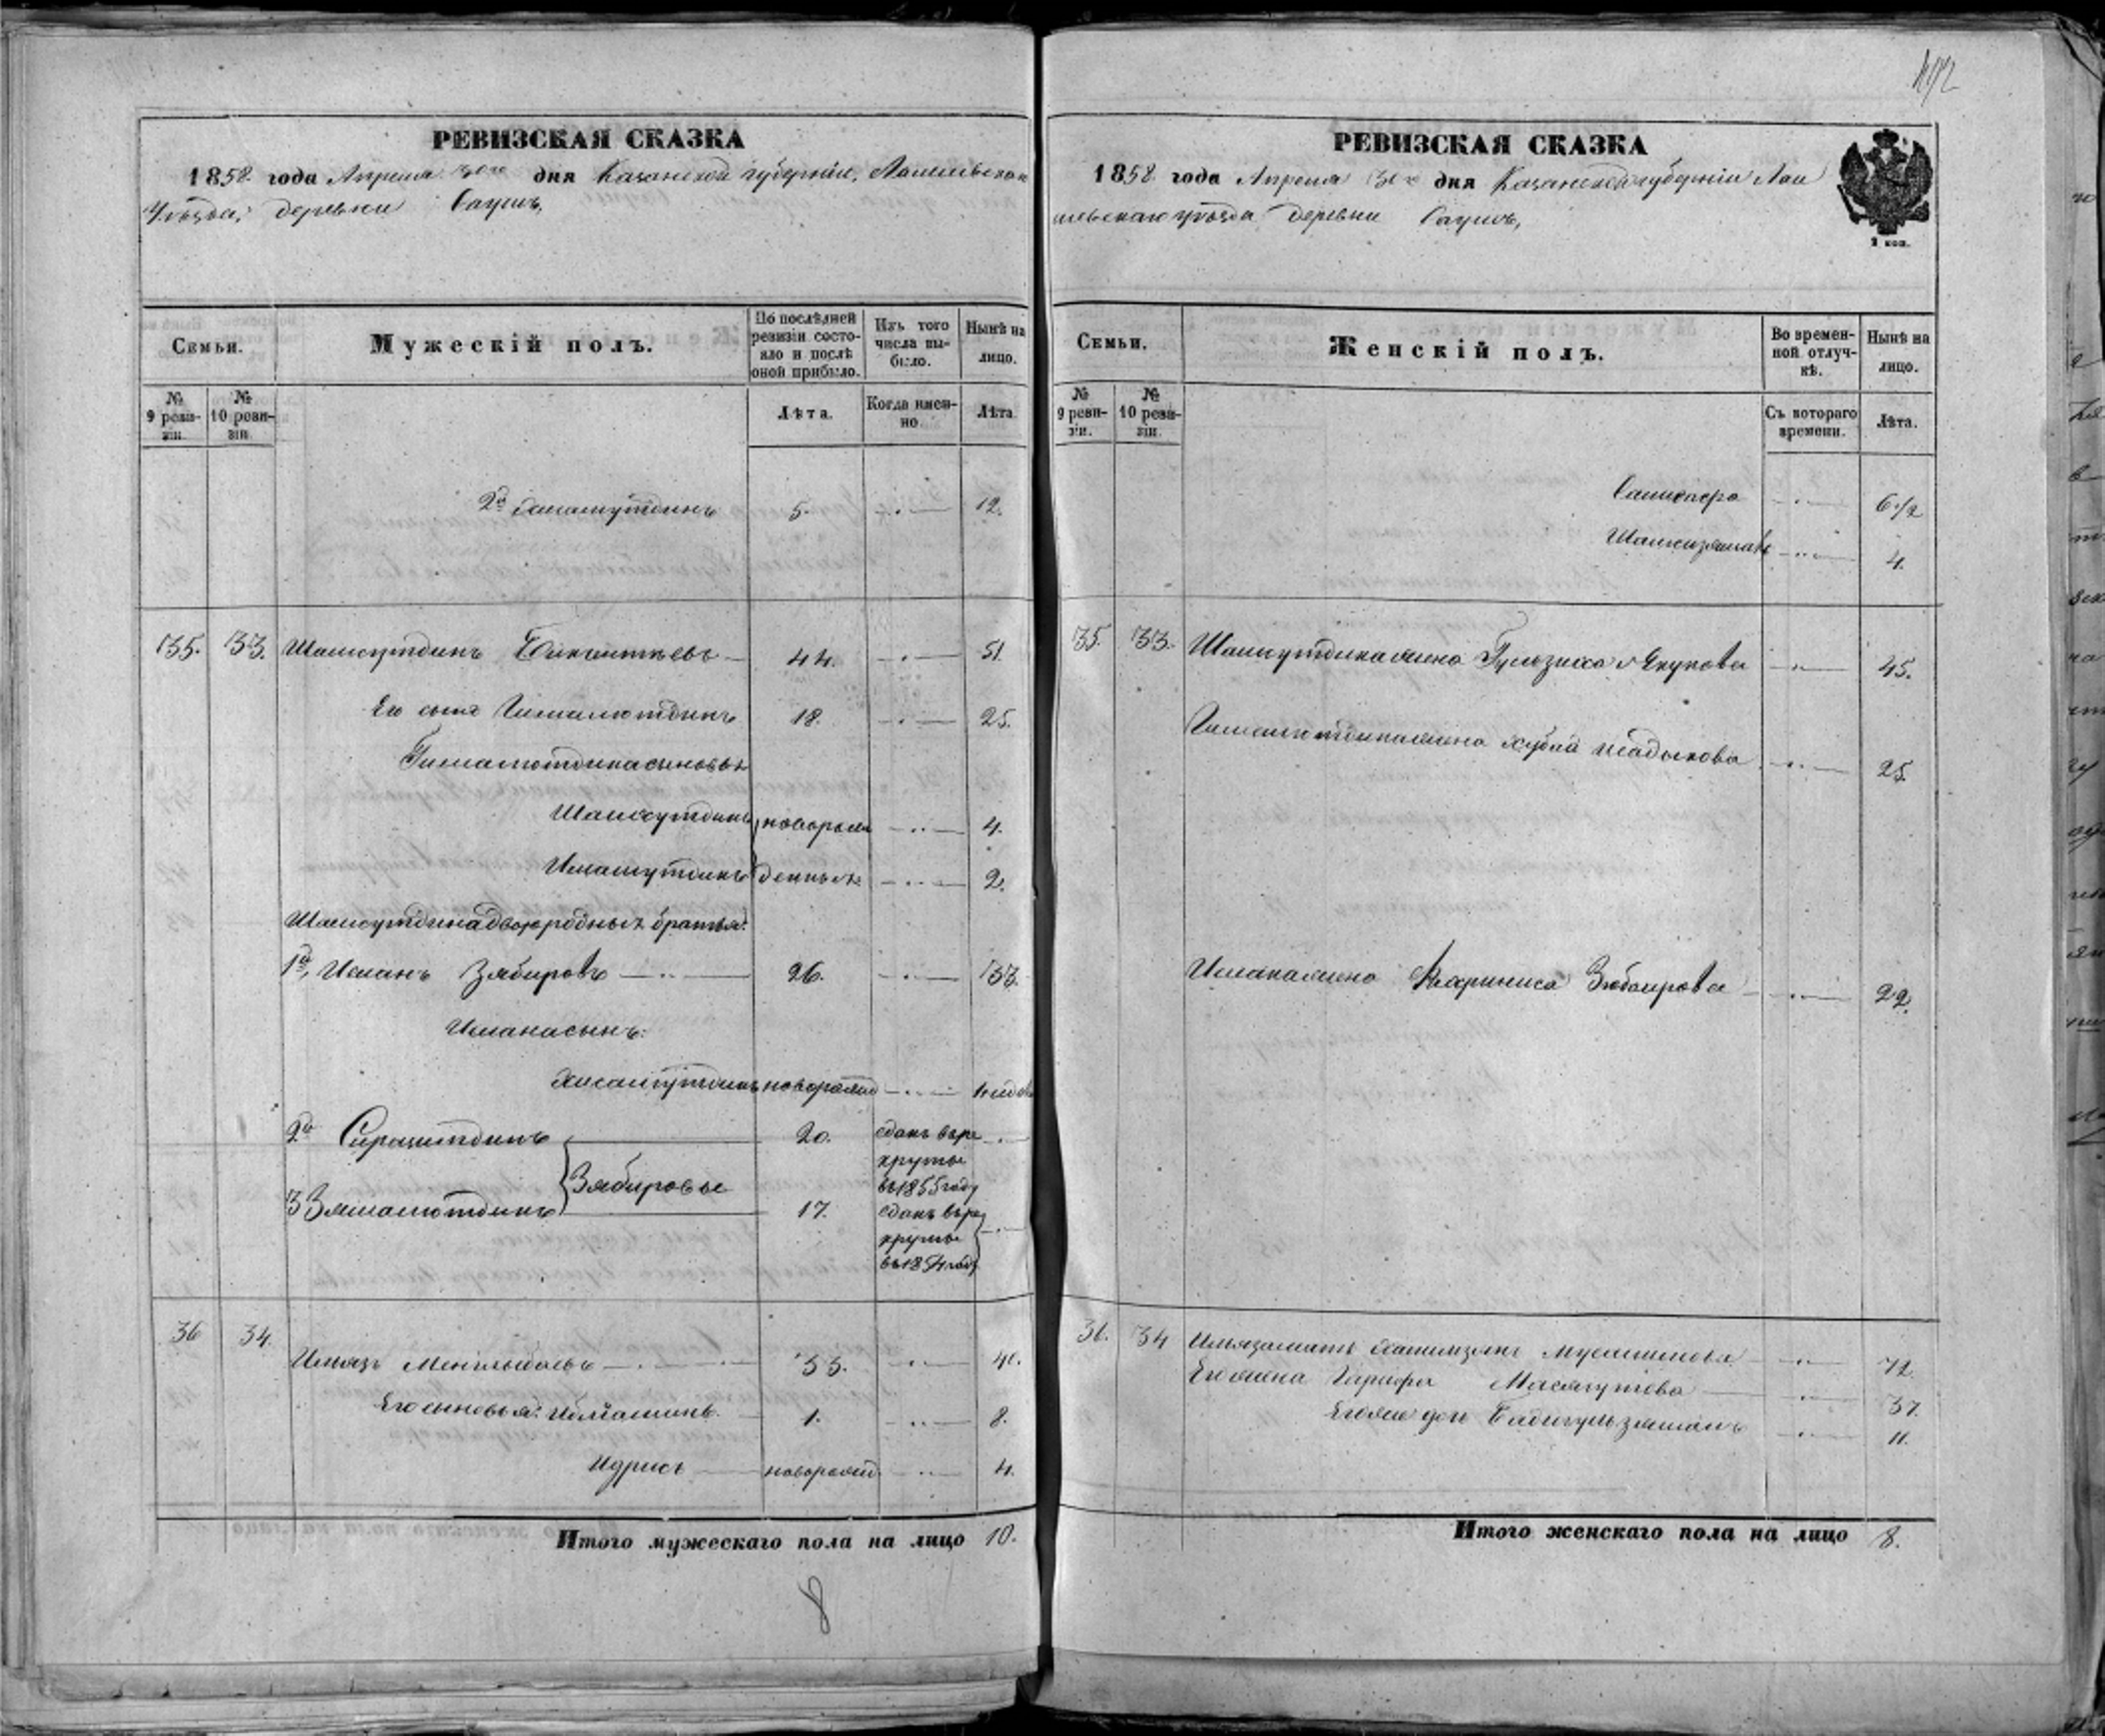 РЕВИЗСКАЯ СКАЗКА
1858 года Апреля 30го дня Казанской губерніи, Лаишевскаго
Уѣзда, деревни Саушъ,
Семьи.
Мужескій полъ.
По послѣдней ревизіи состояло и послѣ оной прибыло.
Изъ того числа выбыло.
Нынѣ на лицо.
№ 9 ревизіи.
№ 10 ревизіи.
Лѣта.
Когда именно
Лѣта
2й 5. 12.
35. 33. Шамсутдинъ 44. 51.
Его сынъ Гималютдинъ 18. 25.
Гималютдина сыновья
Шамсутдинъ новорож 4.
Имамутдинъ денные 2.
Шамсутдина двоюродные братья:
1й, Иманъ Зябировъ 26. 33.
Имана сынъ:
Хисамутдинъ новорожд
2й Сиразитдинъ 20. сданъ въ ре
круты
въ 1855 году
Зябировы
3 Зямалютдинъ 17. сданъ въ ре
круты
въ 1854 году
36 34. Ильязъ Менглыбаевъ 33. 40.
Его сыновья: 1. 8.
Идрисъ новорожд. 4.
Итого мужескаго пола на лицо 10.
8
РЕВИЗСКАЯ СКАЗКА
1858 года Апреля 30го дня Казанской губерніи Лаи
шевскаго уѣзда деревни Саушъ,
1 коп.
Семьи.
Женскій полъ.
Во временной отлучкѣ.
Нынѣ на лицо.
№ 9 ревизіи.
№ 10 ревизіи.
Съ котораго времени.
Лѣта.
6 1/2
4.
35. 33. Шамсутдина жена Якупова 45.
Гималютдина жена Садыкова 25.
Имана жена Зюбаирова 22.
36. 34 Ильяза мать 72.
Его жена Гарифа Масягутова 37.
Его же дочь Бадигульзямалъ 11.
Итого женскаго пола на лицо 8.